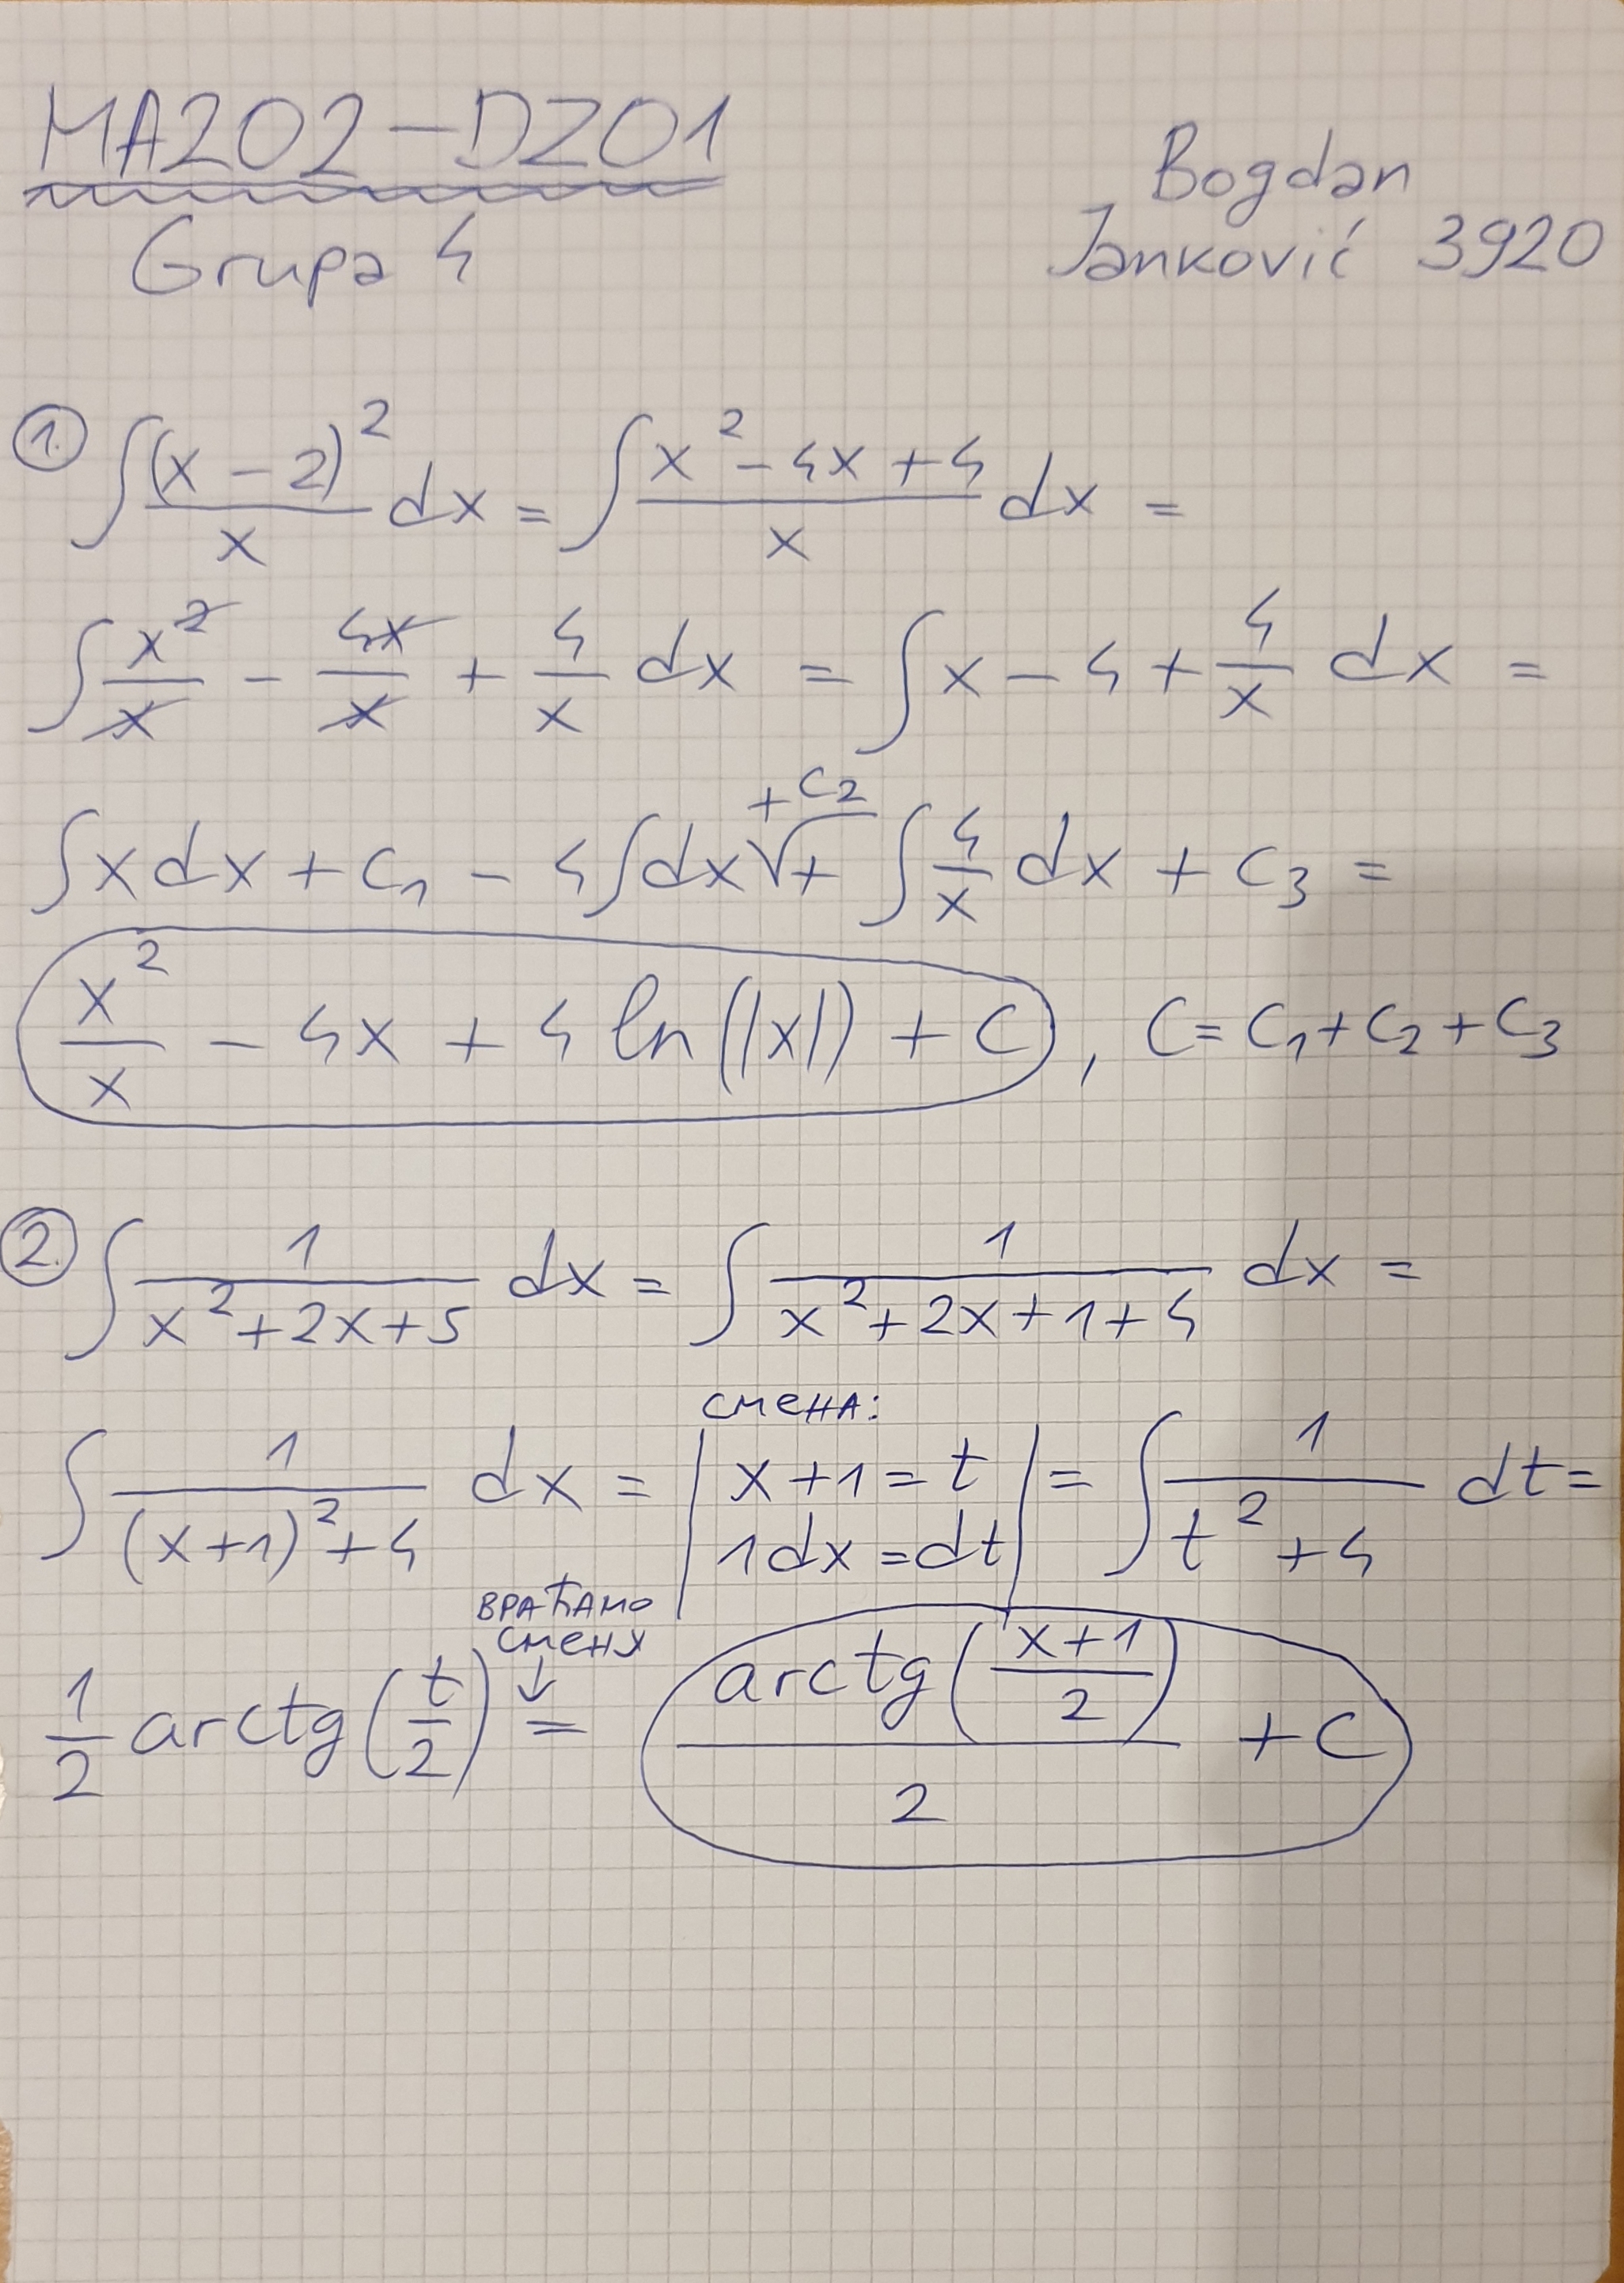 MA202-DZ01
Grupa 4
Bogdan
Janković 3920
1. ∫(x-2)²/x dx = ∫(x²-4x+4)/x dx =
∫x²/x - 4x/x + 4/x dx = ∫x-4+4/x dx =
∫xdx + c₁ - 4∫dx +c₂ + ∫4/x dx + c₃ =
x²/x - 4x + 4 ln(|x|) + C, C = c₁+c₂+c₃
2. ∫1/(x²+2x+5) dx = ∫1/(x²+2x+1+4) dx =
СМЕНА:
∫1/((x+1)²+4) dx = | x+1=t 1dx=dt | = ∫1/(t²+4) dt =
ВРАЋАМО
СМЕНУ
↓
1/2 arctg(t/2) = arctg((x+1)/2)/2 + C